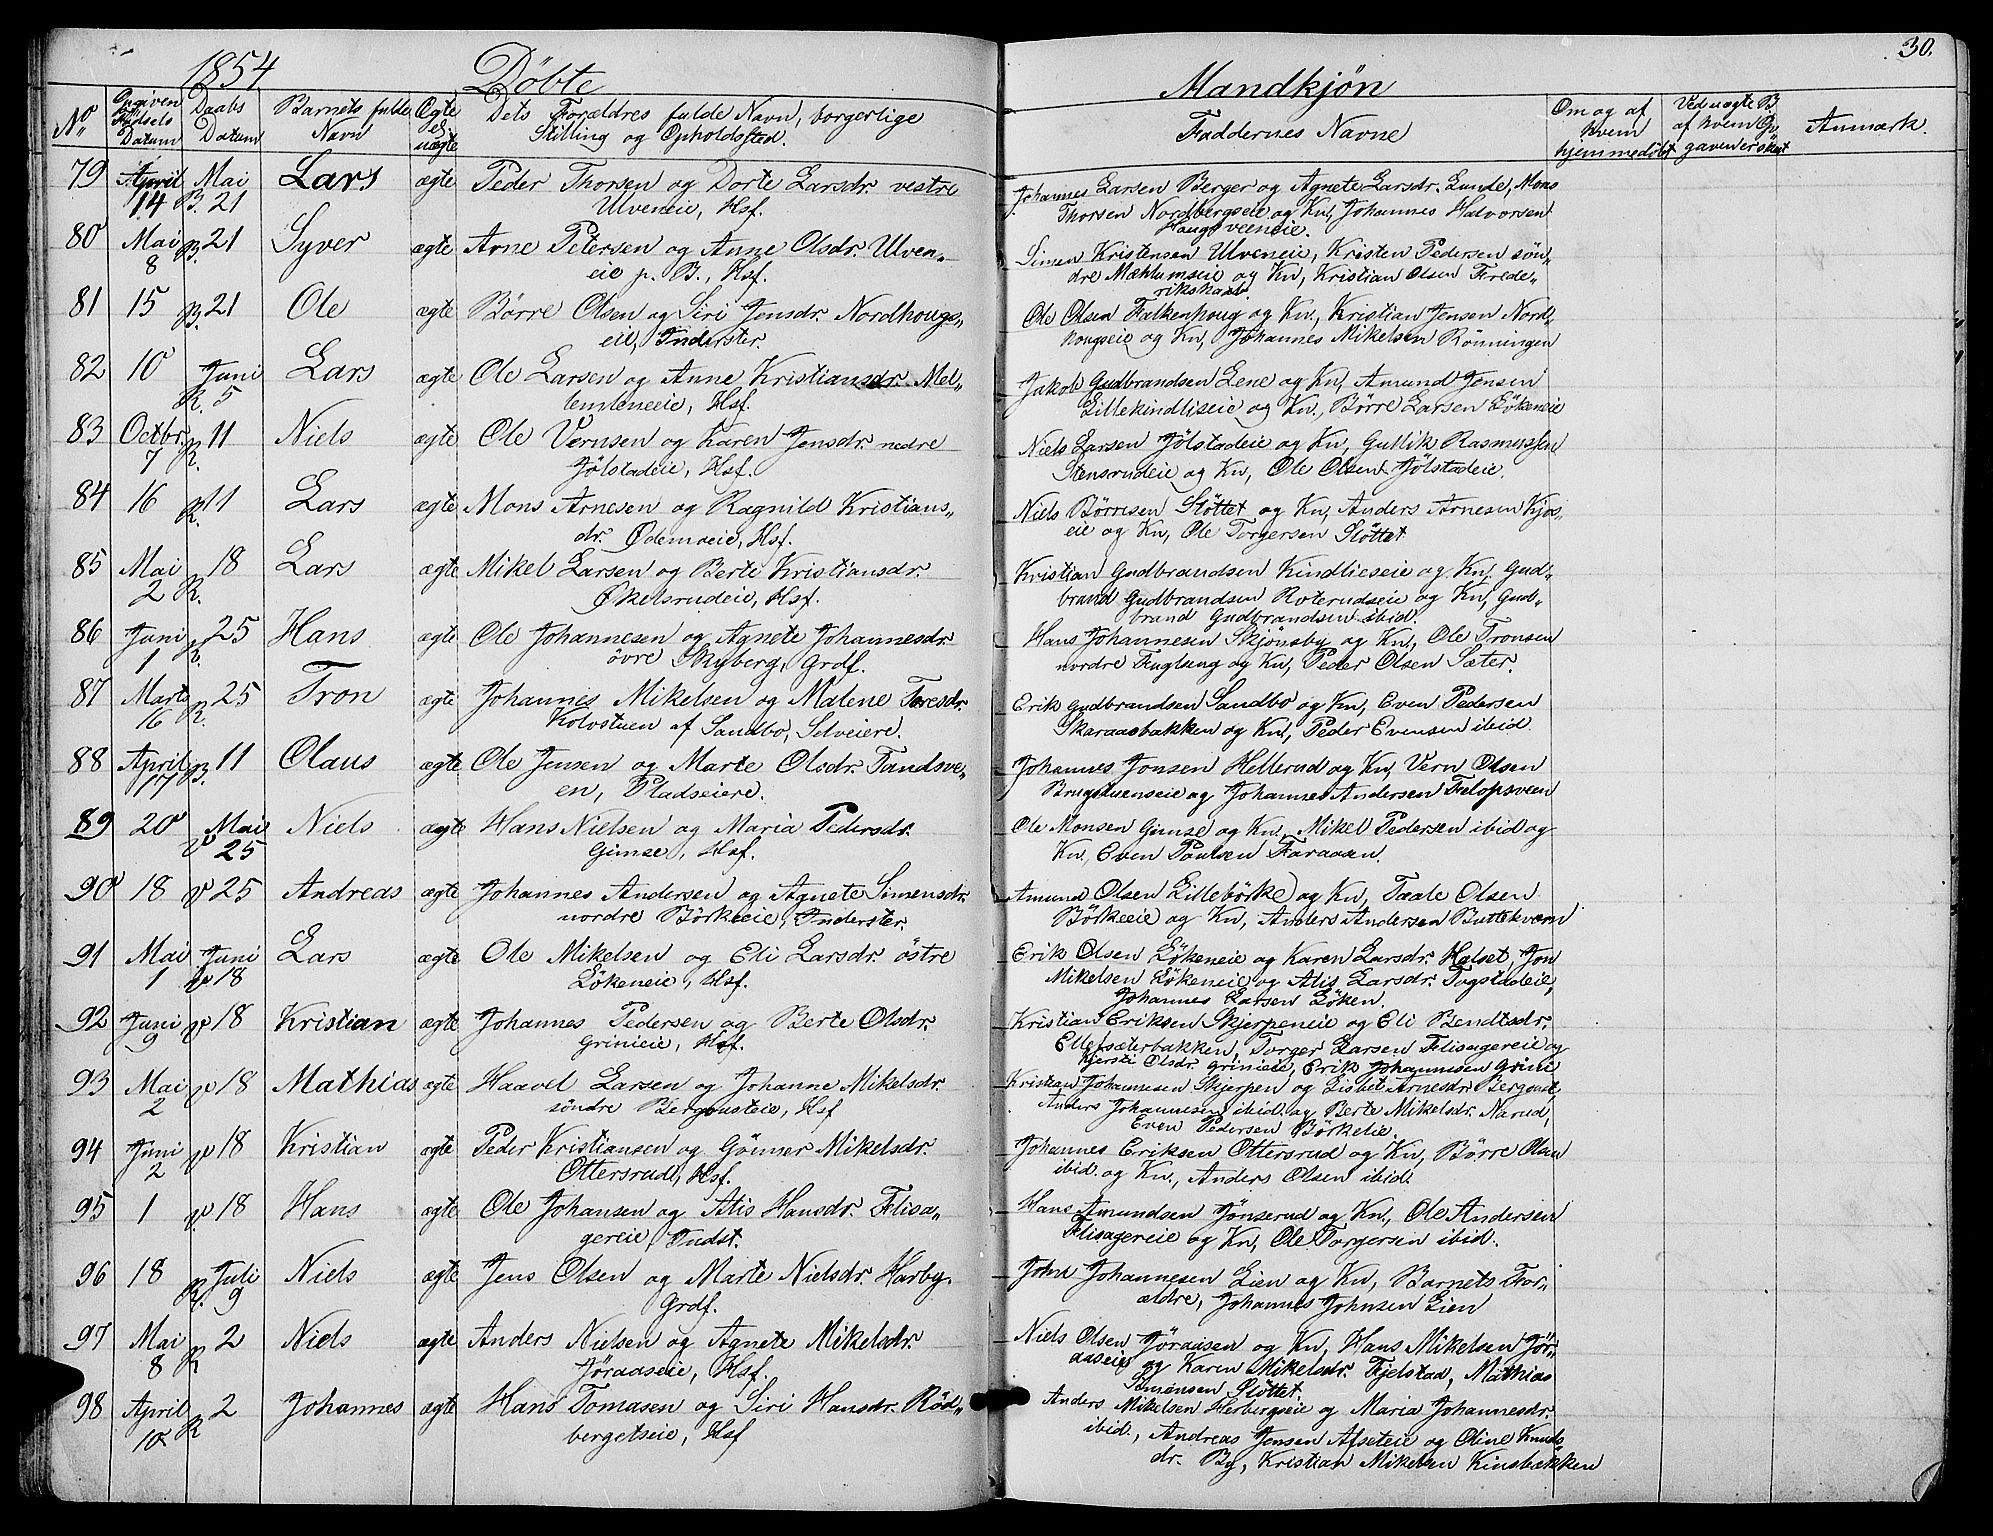 1854.
Döbte
Mandkjön
30.
No
Opgiven Fødsels Datum
Daabs Datum
Barnets fulde Navn
Ægte el. uægte
Dets Forældres fulde Navn, borgerlige Stilling og Opholdssted.
Faddernes Navne
Om og af hvem hjemmedöbt
Ved uægte B. af hvem Opgaven er skeet
Anmærk.
79 April 14 Mai B. 21 Lars ægte Peder Thorsen og Dorte Larsdr. vestre
Ulveneie, Hsf.
Johannes Larsen Berger og Agnete Larsdr. Lunde, Mons
Thorsen Nordbergseie og Kn, Johannes Halvorsen
Haugsveeneie.
80 Mai 8 B. 21 Syver ægte Arne Petersen og Anne Olsdr. Ulven-
eie p. B., Hsf.
Simen Kristensen Ulveneie, Kristen Pedersen sön-
dre Mæhlumseie og Kn, Kristian Olsen Frede-
rikshald.
81 15 B. 21 Ole ægte Börre Olsen og Siri Jensdr. Nordhougs-
eie, Inderster.
Ole Olsen Falkenhoug og Kn, Kristian Jensen Nord-
hougseie og Kn, Johannes Mikelsen Rönningen
82 10 Juni R. 5 Lars ægte Ole Larsen og Anne Kristiansdr. Mel-
lemleneeie, Hsf.
Jakob Gudbrandsen Lene og Kn, Amund Jensen
Lillekindliseie og Kn, Börre Larsen Lökeneie
83 Octbr. 7 R. 11 Niels ægte Ole Vernsen og Karen Jensdr. nedre
Jölstadeie, Hsf.
Niels Larsen Jölstadeie og Kn, Gullik Rasmussen
Stensrudeie og Kn, Ole Olsen Jölstadeie.
84 16 R. 11 Lars ægte Mons Arnesen og Ragnild Kristians-
dr. Ödemoeie, Hsf.
Niels Börresen Slöttet og Kn, Anders Arnesen Kjos-
eie og Kn, Ole Torgersen Slöttet
85 Mai 2 R. 18 Lars ægte Mikel Larsen og Berte Kristiansdr.
Økelsrudeie, Hsf.
Kristian Gudbrandsen Kindlieseie og Kn. Gud-
brand Gudbrandsen Roterudseie og Kn, Gud-
brand Gudbrandsen ibid.
86 Juni 1 R. 25 Hans ægte Ole Johannesen og Agnete Johannesdr.
övre Skyberg, Grdf.
Hans Johannesen Skjönsby og Kn, Ole Tronsen
nordre Fuglseng og Kn, Peder Olsen Sæter.
87 Marts 16 R. 25 Tron ægte Johannes Mikelsen og Malene Toresdr.
Kolostuen af Sandbo, Selveiere.
Erik Gudbrandsen Sandbo og Kn, Even Pedersen
Skaraasbakken og Kn, Peder Evensen ibid.
88 April 17 B. 11 Olaus ægte Ole Jensen og Marte Olsdr. Tandsve-
en, Pladseiere.
Johannes Jonsen Hellerud og Kn, Vern Olsen
Brugstuenseie og Johannes Andersen Felopsveen
89 20 Mai V 25 Niels ægte Hans Nielsen og Maria Pedersdr.
Gimse, Hsf.
Ole Monsen Gimse og Kn, Mikel Pedersen ibid og
Kn, Even Poulsen Faraasen.
90 18 V 25 Andreas ægte Johannes Andersen og Agnete Simensdr.
nordre Börkeeie, Inderster.
Amund Olsen Lillebörke og Kn, Taale Olsen
Börkeeie og Kn, Anders Andersen Buttekværn
91 Mai 1 Juni V 18 Lars ægte Ole Mikelsen og Eli Larsdr. östre
Lökeneie, Hsf.
Erik Olsen Lökeneie og Karen Larsdr. Halset, Jon
Mikelsen Lökeneie og Alis Larsdr. Togstadeie,
Johannes Larsen Löken.
92 Juni 9 V 18 Kristian ægte Johannes Pedersen og Berte Olsdr.
Grinieie, Hsf.
Kristian Eriksen Skjerpeneie og Eli Bendtsdr.
Ellefsæterbakken, Torger Larsen Flisagereie og
Kjersti Olsdr. Grinieie, Erik Johannesen Grini
93 Mai 2 V 18 Mathias ægte Haavel Larsen og Johanne Mikelsdr
söndre Bergousteie, Hsf
Kristian Johannesen Skjerpen og Lisbet Arnesdr. Bergoust,
Anders Johannesen ibid. og Berte Mikelsdr. Narud,
Even Pedersen Börkeeie.
94 Juni 2 V 18 Kristian ægte Peder Kristiansen og Gönner Mikelsdr.
Ottersrud, Hsf.
Johannes Eriksen Ottersrud og Kn, Börre Olsen
ibid. og Kn., Anders Olsen ibid.
95 1 V 18 Hans ægte Ole Johansen og Alis Hansdr. Flisa-
gereie, Indst.
Hans Amundsen Jönserud og Kn., Ole Andersen
Flisagereie og Kn, Ole Torgersen ibid.
96 18 Juli R. 9 Niels ægte Jens Olsen og Marte Nielsdr. Harby
Grdf.
John Johannesen Lien og Kn, Barnets For-
ældre, Johannes Johnsen Lien
97 Mai 8 R 2 Niels ægte Anders Nielsen og Agnete Mikelsdr.
Jöraaseie, Hsf.
Niels Olsen Jöraasen og Kn, Hans Mikelsen Jör-
aaseie og Karen Mikelsdr. Fjelstad, Mathias
Simensen Slöttet.
98 April 10 R 2 Johannes ægte Hans Tomasen og Siri Hansdr. Röd-
bergetseie, Hsf
Anders Mikelsen Herbergseie og Maria Johannesdr.
ibid., Andreas Jensen Afseteie og Oline Knuds-
dr. By, Kristian Mikelsen Kinsbækken